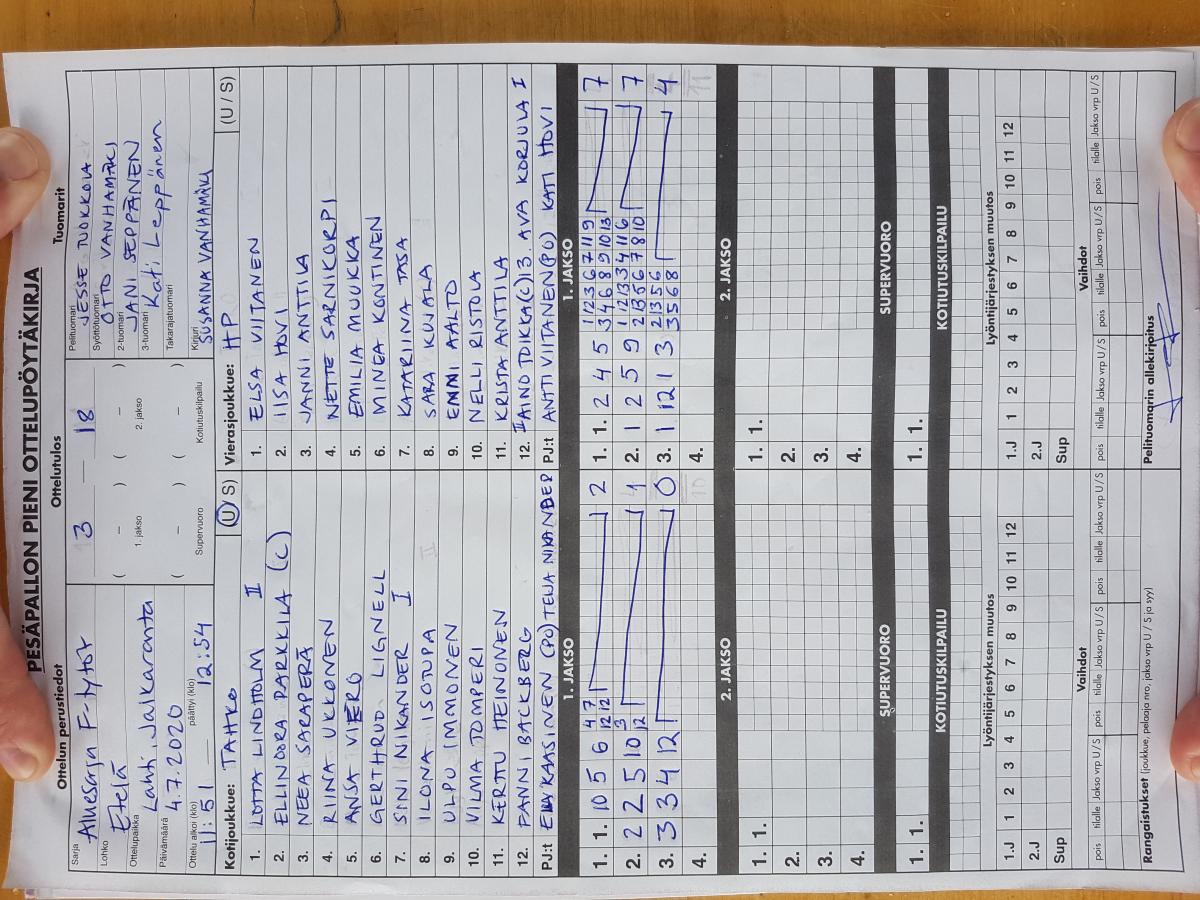 PESÄPALLON PIENI OTTELUPÖYTÄKIRJA
Ottelun perustiedot
Sarja Aluesarja F-tytöt
Lohko Etelä
Ottelupaikka Lahti, Jalkaranta
Päivämäärä 4.7.2020
Ottelu alkoi (klo) 11:51 päättyi (klo) 12:54
Ottelutulos
3 — 18
( – ) ( – )
1. jakso 2. jakso
( – ) ( – )
Supervuoro Kotiutuskilpailu
Tuomarit
Pelituomari JESSE TUOKKOLA
Syöttötuomari OTTO VANHAMÄKI
2-tuomari JANI SEPPÄNEN
3-tuomari Kati Leppänen
Takarajatuomari
Kirjuri SUSANNA VANHAMÄKI
Kotijoukkue: TAHKO (U/S)
1. LOTTA LINDHOLM II
2. ELLINOORA PARKKILA (C)
3. NEEA SARAPERÄ
4. RIINA UKKONEN
5. ANSA VIERO
6. GERTHRUD LIGNELL
7. SINI NIKANDER I
8. ILONA ISOTUPA
9. ULPU IMMONEN
10. VILMA TOMPERI
11. KERTTU HEINONEN
12. FANNI BACKBERG
PJ:t KAASINEN (PO) TEIJA NIKANDER
Vierasjoukkue: HP (U / S)
1. ELSA VIITANEN
2. IISA HOVI
3. JANNI ANTTILA
4. NETTE SARNIKORPI
5. EMILIA MUUKKA
6. MINEA KONTINEN
7. KATARIINA TASA
8. SARA KUJALA
9. EMMI AALTO
10. NELLI RISTOLA
11. KRISTA ANTTILA
12. II AINO TOIKKA(C) 13 AVA KORJULA I
PJ:t ANTTI VIITANEN(PO) KATI HOVI
1. JAKSO
1. 1. 10 5 6 4 7 2
12 12
2. 2 2 5 10 3 1
12
3. 3 3 4 12 0
4.
1. JAKSO
1. 1. 2 4 5 1 12 3 6 7 11 9 7
3 4 6 8 9 10 13
2. 1 2 5 9 1 12 13 3 4 11 6 7
2 13 5 6 7 8 10
3. 1 12 1 3 2 13 5 6 4
3 5 6 8
4.
2. JAKSO
1. 1.
2.
3.
4.
2. JAKSO
1. 1.
2.
3.
4.
SUPERVUORO
1. 1.
SUPERVUORO
1. 1.
KOTIUTUSKILPAILU
KOTIUTUSKILPAILU
Lyöntijärjestyksen muutos
1.J 1 2 3 4 5 6 7 8 9 10 11 12
2.J
Sup
Lyöntijärjestyksen muutos
1.J 1 2 3 4 5 6 7 8 9 10 11 12
2.J
Sup
Vaihdot
pois tilalle Jakso vrp U / S pois tilalle Jakso vrp U / S pois tilalle Jakso vrp U / S
Vaihdot
pois tilalle Jakso vrp U / S pois tilalle Jakso vrp U / S pois tilalle Jakso vrp U / S
Rangaistukset (joukkue, pelaaja nro, jakso vrp U / S ja syy)
Pelituomarin allekirjoitus